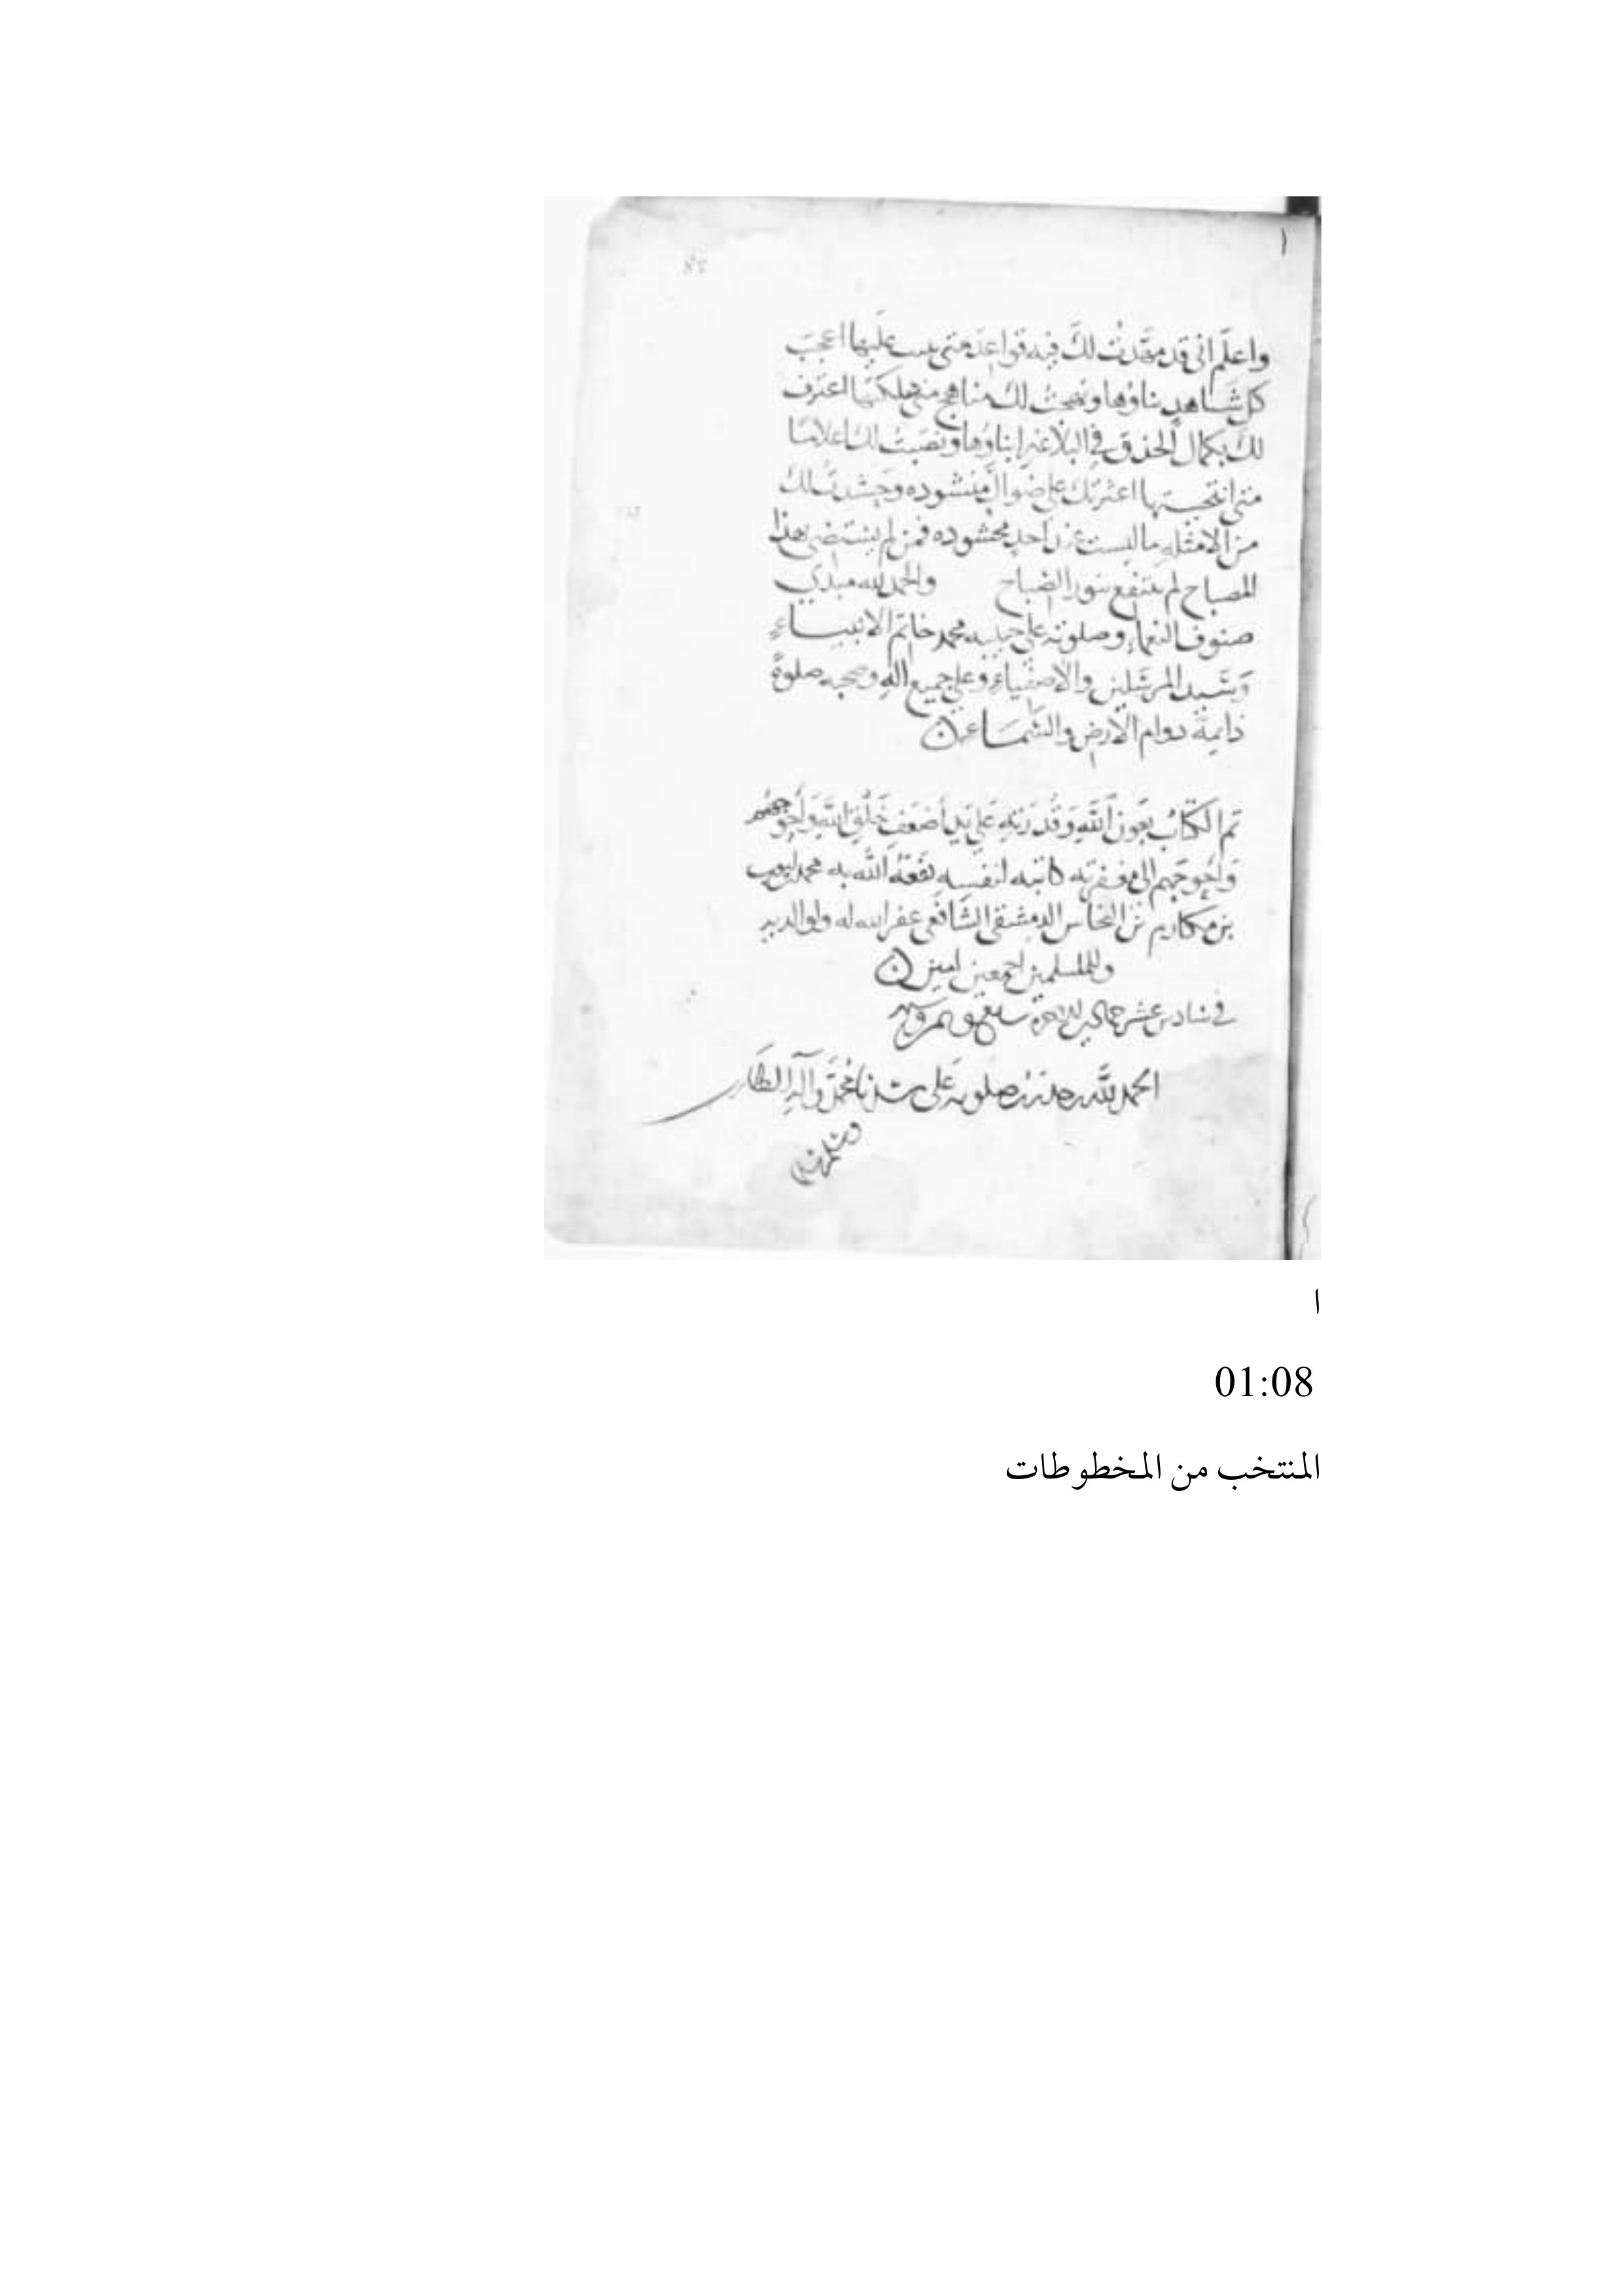 واعلم انى قد مهدت لك فيه قواعد متى بنيت عليها اعجب
كل شاهد بناؤها ونهجت لك مناهج متى سلكتها اعترف
لك بكمال الحذق في البلاغه ابناؤها ونصبت لك اعلاما
متى انتحيتها اعثرتك على ضوال منشوده وحشدت لك
من الامثله ما ليست عند احد محشوده فمن لم يستضى بهذا
المصباح لم ينتفع بنور الصباح والحمد لله مبدي
صنوف النعماء وصلوته على حبيبه محمد خاتم الانبياء
وسيد المرسلين والاصفياء وعلى جميع اله وصحبه صلوة
دايمة دوام الارض والسماء
تم الكتاب بعون الله وقدرته على يد اضعف خلق الله واحوجهم
واحوجهم الى مغفرته كاتبه لنفسه نفعه الله به محمد
بن مكارم بن النحاس الدمشقى الشافعى غفر الله له ولوالديه
وللمسلمين اجمعين امين
في سادس عشر جمادى الاخرة سنة
الحمد لله وصلوته على سيدنا محمد وآله
ا
01:08
المنتخب من المخطوطات